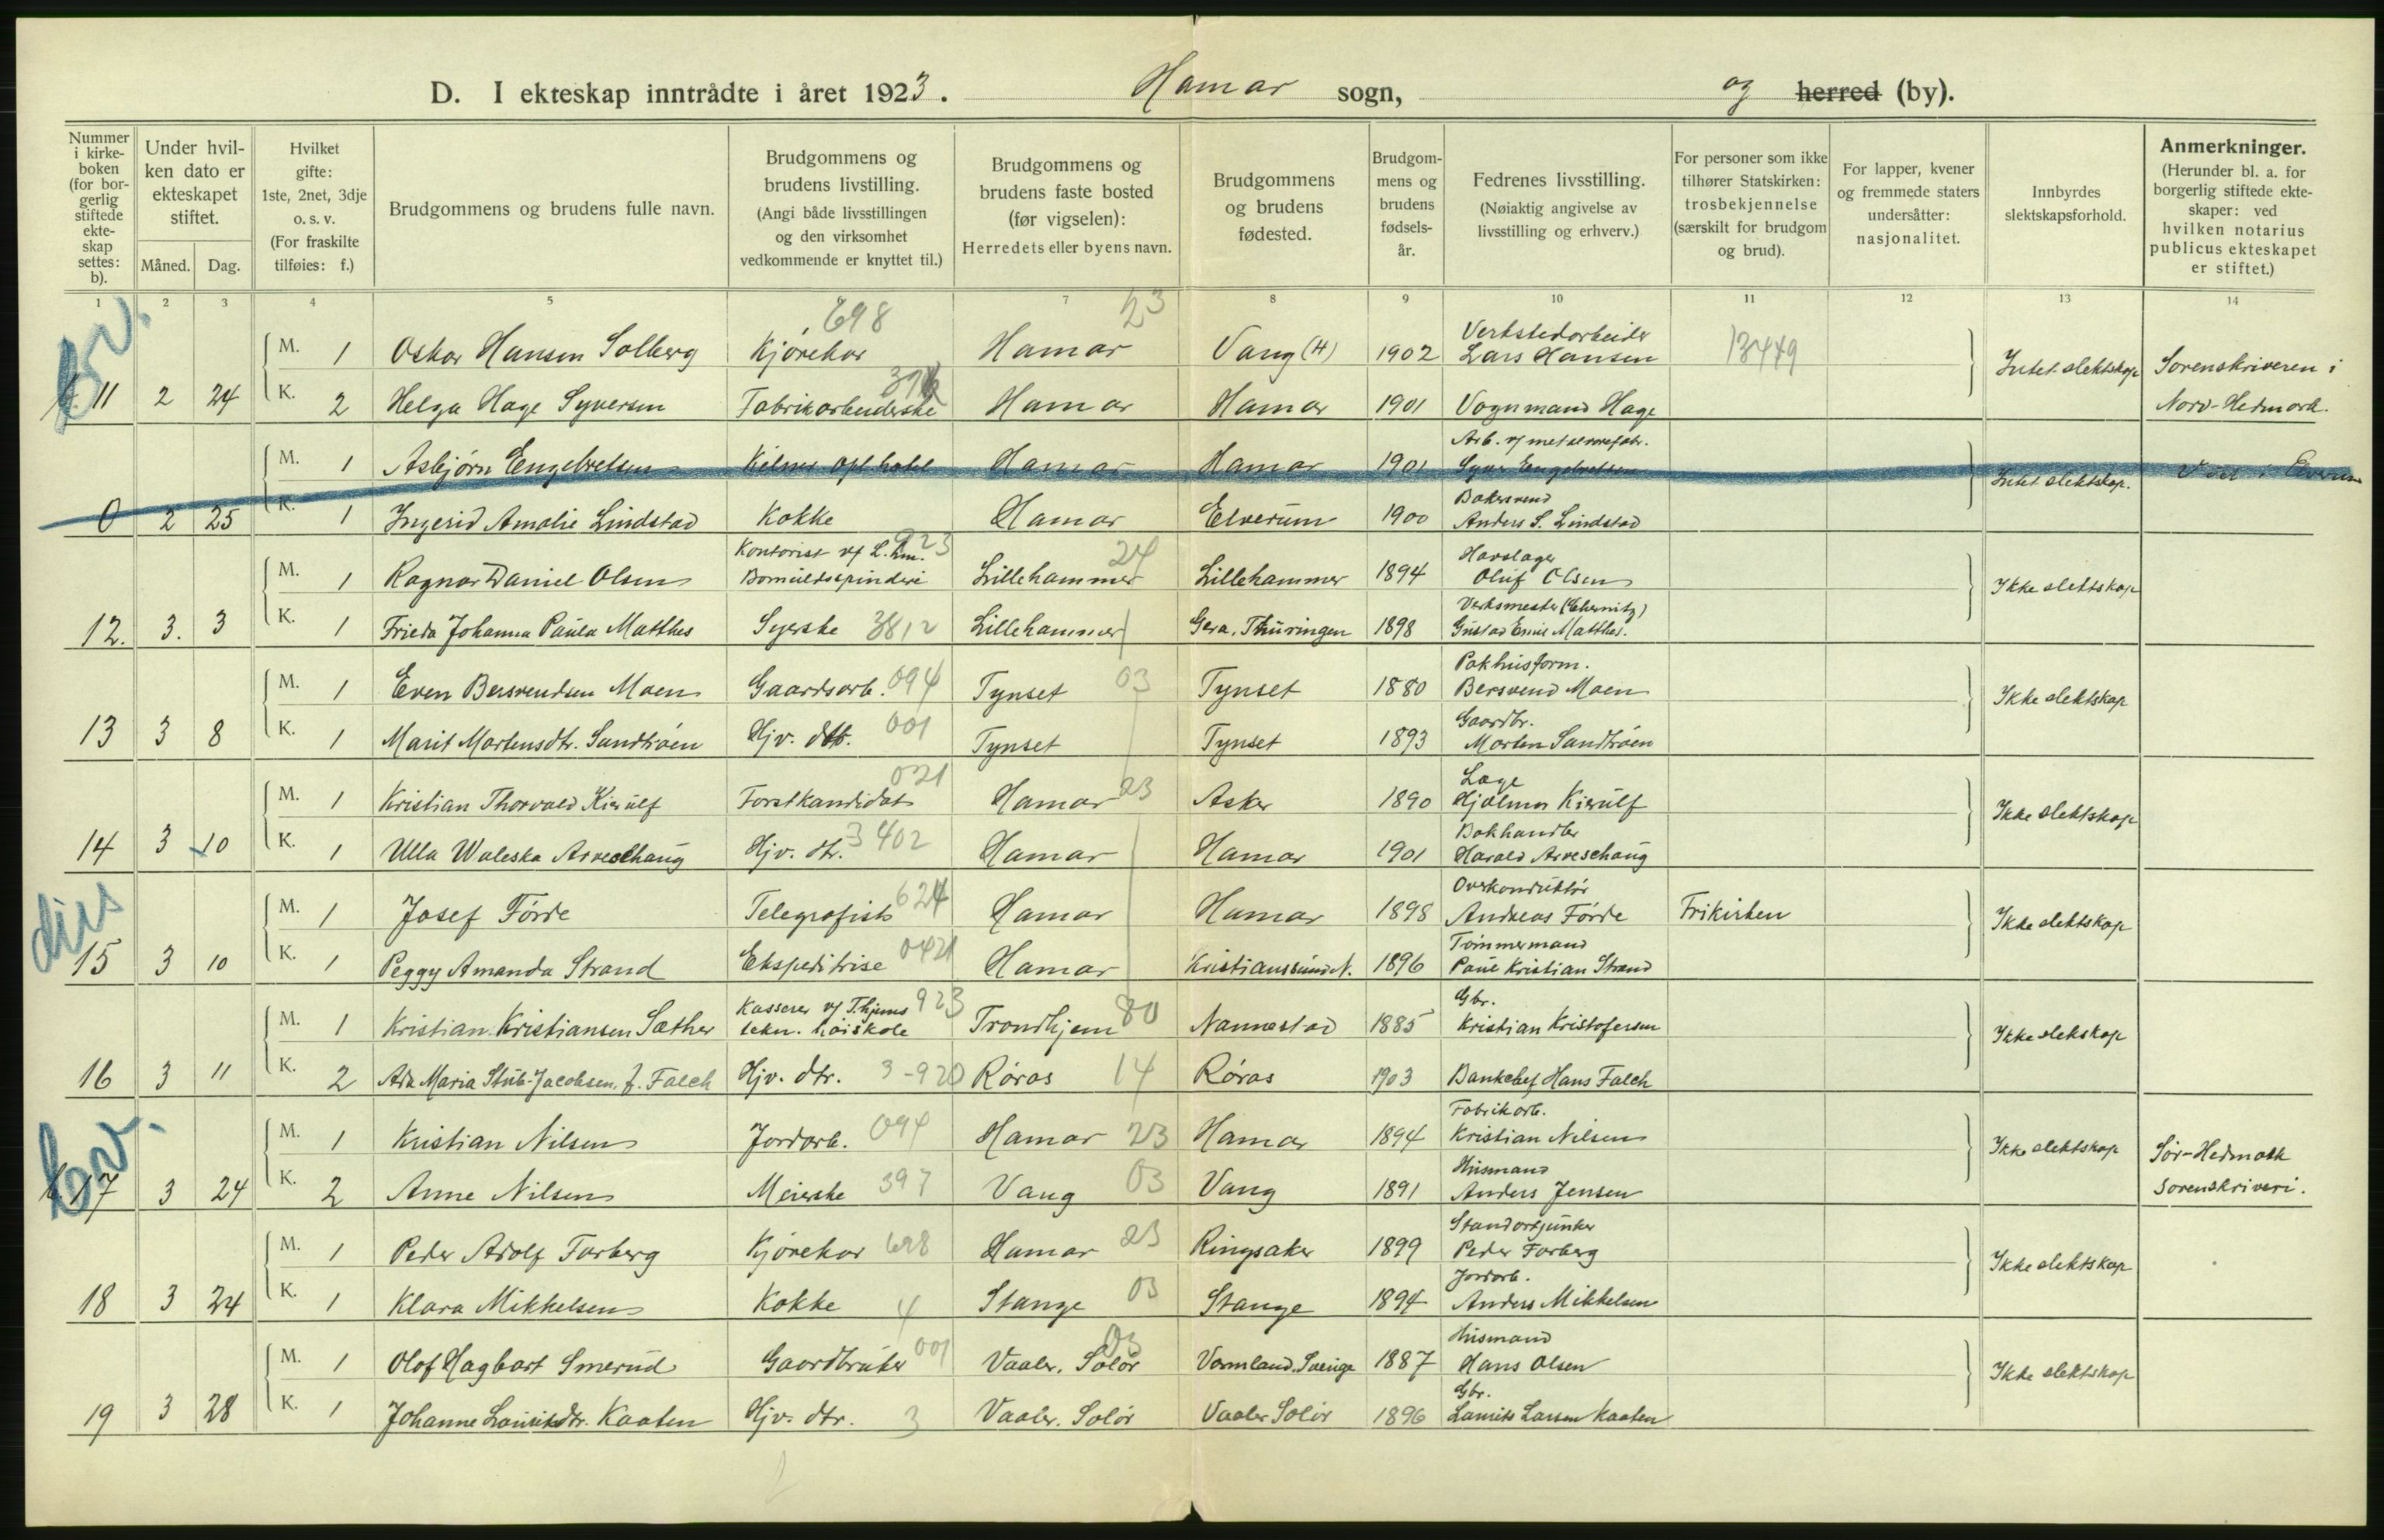 D. I ekteskap inntrådte i året 1923. Hamar sogn, og herred (by).
Nummer i kirke-boken (for bor-gerlig stiftede ekte-skap settes: b).
Under hvil-ken dato er ekteskapet stiftet.
Måned. Dag.
Hvilket gifte: 1ste, 2net, 3dje o. s. v. (For fraskilte tilføies: f.)
Brudgommens og brudens fulle navn.
Brudgommens og brudens livstilling. (Angi både livsstillingen og den virksomhet vedkommende er knyttet til.)
Brudgommens og brudens faste bosted (før vigselen): Herredets eller byens navn.
Brudgommens og brudens fødested.
Brudgom-mens og brudens fødsels-år.
Fedrenes livsstilling. (Nøiaktig angivelse av livsstilling og erhverv.)
For personer som ikke tilhører Statskirken: trosbekjennelse (særskilt for brudgom og brud).
For lapper, kvener og fremmede staters undersåtter: nasjonalitet.
Innbyrdes slektskapsforhold.
Anmerkninger. (Herunder bl. a. for borgerlig stiftede ekte-skaper: ved hvilken notarius publicus ekteskapet er stiftet.)
1 2 3 4 5 6 7 8 9 10 11 12 13 14
bv. 698 23 Verkstedarbeider
M. 1 Oskar Hansen Solberg Kjørekar Hamar Vang (H) 1902 Lars Hansen 13449 Intet slektskap Sorenskriveren i
b. 11 2 24 K. 2 Helga Hage Syversen Fabrikarbeiderske Hamar Hamar 1901 Vognmand Hage Nord-Hedmark.
Arb. v/ metalvarefabr.
M. 1 Asbjørn Engebretsen Kelner Opl. hotel Hamar Hamar 1901 Syver Engebretsen Intet slektskap. Viet i Elverum
Bakersvend
0 2 25 K. 1 Ingerid Amalie Lindstad Kokke Hamar Elverum 1900 Anders S. Lindstad
Kontorist v/ L.hm. 923 24 Havslager
M. 1 Ragnar Daniel Olsen Bomuldsspinderi Lillehammer Lillehammer 1894 Oluf Olsen Ikke slektskap
Verksmester (Chemnitz)
12. 3. 3 K. 1 Frieda Johanna Paula Matthes Syerske 3812 Lillehammer Gera, Thüringen 1898 Gustav Emil Matthes.
Pakhusform.
M. 1 Even Bersvendsen Moen Gaardsarb. 094 Tynset 03 Tynset 1880 Bersvend Moen Ikke slektskap
Gaardbr.
13 3 8 K. 1 Marit Mortensdtr. Sandtrøen Hjv. dtr. 001 Tynset Tynset 1893 Morten Sandtrøen
021 Læge
M. 1 Kristian Thorvald Kierulf Forstkandidat Hamar 23 Asker 1890 Hjalmar Kierulf Ikke slektskap
Bokhandler
14 3 10 K. 1 Ulla Waleska Arveschaug Hjv. dtr. 3402 Hamar Hamar 1901 Harald Arveschaug
diss Overkonduktør
M. 1 Josef Førde Telegrafist 624 Hamar Hamar 1898 Andreas Førde Frikirken Ikke slektskap
Tømmermand
15 3 10 K. 1 Peggy Amanda Strand Ekspeditrise 0421 Hamar Kristianssund N. 1896 Paul Kristian Strand
Kasserer v/ T.hjems 923 Gbr.
M. 1 Kristian Kristiansen Sæther tekn. høiskole Trondhjem 80 Nannestad 1885 Kristian Kristofersen Ikke slekskap
16 3 11 K. 2 Ada Maria Stub-Jacobsen, f. Falch Hjv. dtr. 3-920 Røros 14 Røros 1903 Bankchef Hans Falch
bv. Fabrikarb.
M. 1 Kristian Nilsen Jordarb. 094 Hamar 23 Hamar 1894 Kristian Nilsen Ikke slektskap Sør-Hedmark
Husmand
b. 17 3 24 K. 2 Anne Nilsen Meierske 397 Vang 03 Vang 1891 Anders Jensen sorenskriveri.
Standartjunker
M. 1 Peder Adolf Farberg Kjørekar 698 Hamar 23 Ringsaker 1899 Peder Farberg Ikke slektskap
Jordarb.
18 3 24 K. 1 Klara Mikkelsen Kokke 4 Stange 03 Stange 1894 Anders Mikkelsen
001 03 Husmand
M. 1 Olof Hagbart Smerud Gaardbruker Vaaler. Solør Vermland, Sverige 1887 Hans Olsen Ikke slektskap
Gbr.
19 3 28 K. 1 Johanne Lauritsdtr. Kaaten Hjv. dtr. 3 Vaaler. Solør Vaaler Solør 1896 Laurits Larsen Kaaten